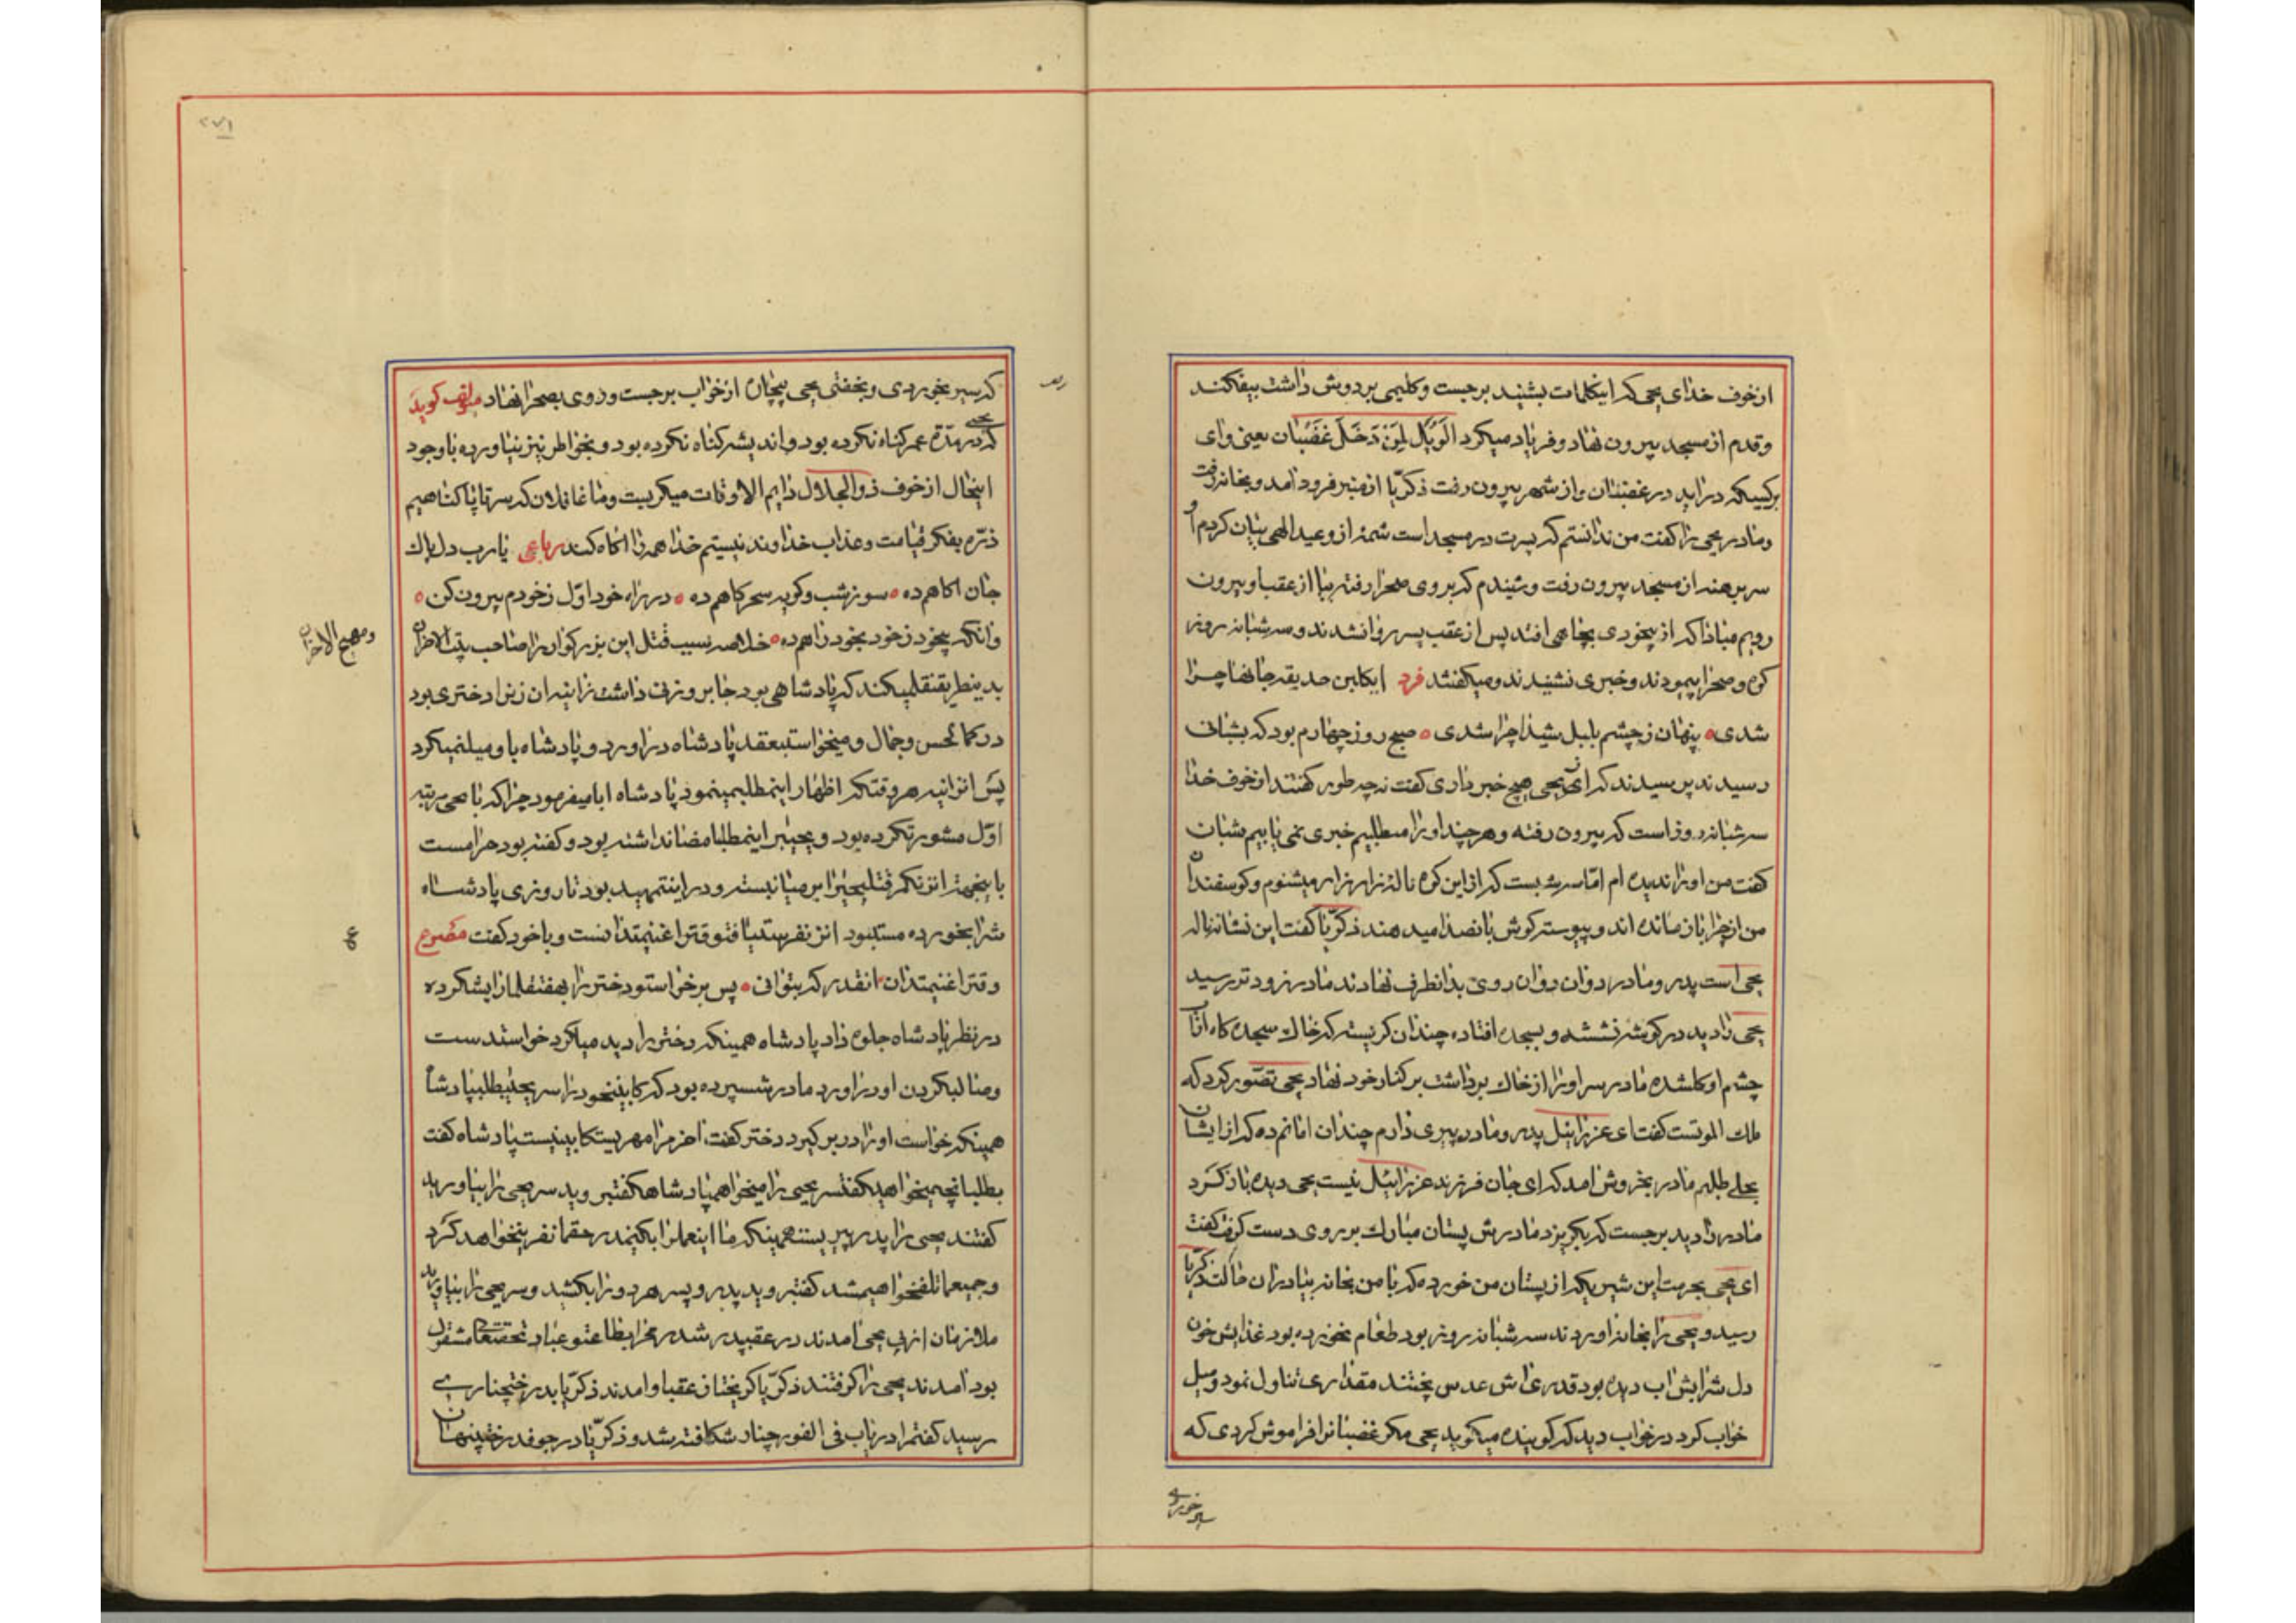 از خوف خدای یحیی که اینکلمات بشنید برجست و کلیمی بر دوش داشت بیفکند
و قدم از مسجد بیرون نهاد و فریاد میکرد اَلوَیلُ لِمَن دَخَلَ غَضَبٰان یعنی وای
برکسیکه دراید در غضبنان و از شهر بیرون رفت ذکریا از منبر فرود امد و بخانه رفت
و مادر یحیی را گفت من ندانستم که پسرت در مسجد است شمهٔ از وعید الهی بیان کردم او
سر برهنه از مسجد بیرون رفت و شنیدم که بروی صحرا رفته بیا از عقب او بیرون
رویم مبادا که از بیخودی بچاهی افتد پس از عقب پسر روانشدند و سه شبانه روز
کوه و صحرا پیمودند و خبری نشنیدند و میگفتند فرد ایکلبن حدیقه جانها چرا
شدی ٥ پنهان ز چشم بلبل شیدا چرا شدی ٥ صبح روز چهارم بود که بشبانی
رسیدند پرسیدند که از یحیی هیچ خبر داری گفت نه چه طور گفتند از خوف خدا
سه شبانه روز است که بیرون رفته و هر چند او را میطلبیم خبری نمی یابیم شبان
گفت من او را ندیده ام امّا سه شبست که از این کوه ناله زار زار میشنوم و گوسفندان
من از چرا باز مانده اند و پیوسته گوش بانصدا میدهند ذکریّا گفت این نشانه ناله
یحیی است پدر و مادر دوان دوان روی بدانطرف نهادند مادر زودتر رسید
یحیی را دید در گوشه نشسته و بسجده افتاده چندان گریسته که خاک سجده گاه از اب
چشم او گلشده مادر سر او را از خاک برداشت بر کنار خود نهاد یحیی تصّور کرد که
ملک الموتست گفت ای عزرائیل پدر و مادر پیری دارم چندان امانم ده که از ایشان
بحلی طلبم مادر بخروش امد که ای جان فرزند عزرائیل نیست یحیی دیده باز کرد
مادر را دید برجست که بگریزد مادرش پستان مبارک بر روی دست گرفت گفت
ای یحیی بحرمت این شیریکه از پستان من خورده که با من بخانه بیا دران حالت ذکریّا
رسید و یحیی را بخانه اوردند سه شبانه روز بود طعام نخورده بود غذایش خون
دل شرابش اب دیده بود قدری اش عدس پختند مقداری تناول نمود و میل
خواب کرد در خواب دید که گوینده میگوید یحیی مگر غضبانرا فراموش کردی که
سیر خوردی
٢٧١
که سیر بخوردی و بخفتی یحیی پیچان از خواب برجست و روی بصحرا نهاد مؤلف گوید
یحیی که در مدّة عمر گناه نکرده بود و اندیشه گناه نکرده بود و بخواطر نیز نیاورده با وجود
اینحال از خوف ذوالجلال دایم الاوقات میگریست و ما غافلان که سر تا پا گناهیم
ذرّه بفکر قیامت و عذاب خداوند نیستیم خدا همه را اگاه کند رباعی یا رب دل پاک
جان اگاهم ده ٥ سوز شب و گریه سحرگاهم ده ٥ در راه خود اوّل ز خودم بیرون کن ٥
وانگه بیخود ز خود بخود راهم ده ٥ خلاصه سبب قتل این بزرگوار را صاحب بیت الاحزان
و مهیج الاحزان
بدینطریق نقلمیکند که پادشاهی بود جابر و زنی داشت زانیه ان زنرا دختری بود
در کمال حسن و جمال و میخواست بعقد پادشاه دراورد و پادشاه باو میلنمیکرد
پس انزانیه هر وقتکه اظهار اینمطلبمینمود پادشاه ابا میفرمود چرا که با یحیی مرتبه
اوّل مشورتکرده بود و یحیی بر اینمطلب امضا نداشته بود و گفته بود حرامست
باینجهت انزن کمر قتلیحییرا بر میانبسته و در اینتمهید بود تا روزی پادشاه
شرابخورده مستبود انزن فرصتیافت و وقترا غنیمتدانست و با خود گفت مصرع
وقترا غنیمتدان انقدر که بتوانی ٥ پس برخواست و دختر را بهفتقلم ارایشکرده
در نظر پادشاه جلوه داد پادشاه همینکه دختر را دید میلکرد خواست دست
همینکه خواست او را در بر گیرد دختر گفت اخر مرا مهریست کابینیست پادشاه گفت
بطلب انچه میخواهی گفت سر یحیی را میخواهم پادشاه گفت بروید سر یحیی را بیاورید
گفتند یحیی را پدر پیریست همینکه ما اینعملرا بکنیم در حقما نفرینخواهد کرد
و جمیعا تلفخواهیمشد گفت بروید پدر و پسر هر دو را بکشید و سر یحیی را بیاورید
ملازمان از پی یحیی امدند
بود امدند یحیی را گرفتند ذکریّا گریخت از عقب او امدند ذکریّا بدرختچناری
رسید گفت مرا دریاب فی الفور چنار شکافته شد و ذکریّا در جوف درخت پنهان